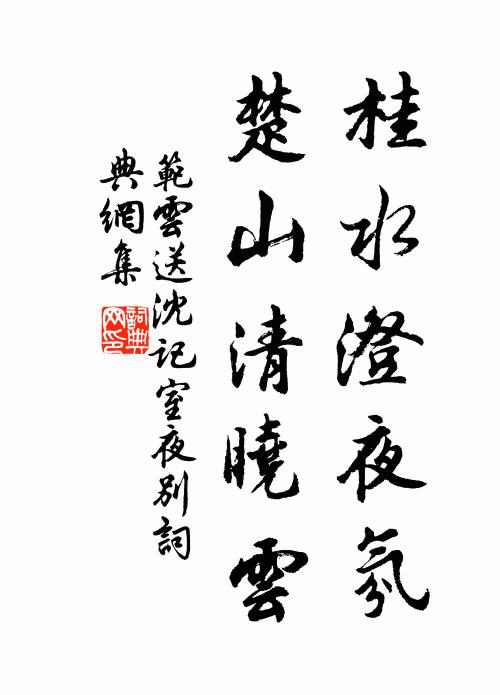 桂水澄夜氛
楚山清曉雲
範雲送沈記室夜別詞
典網集
詞典网印